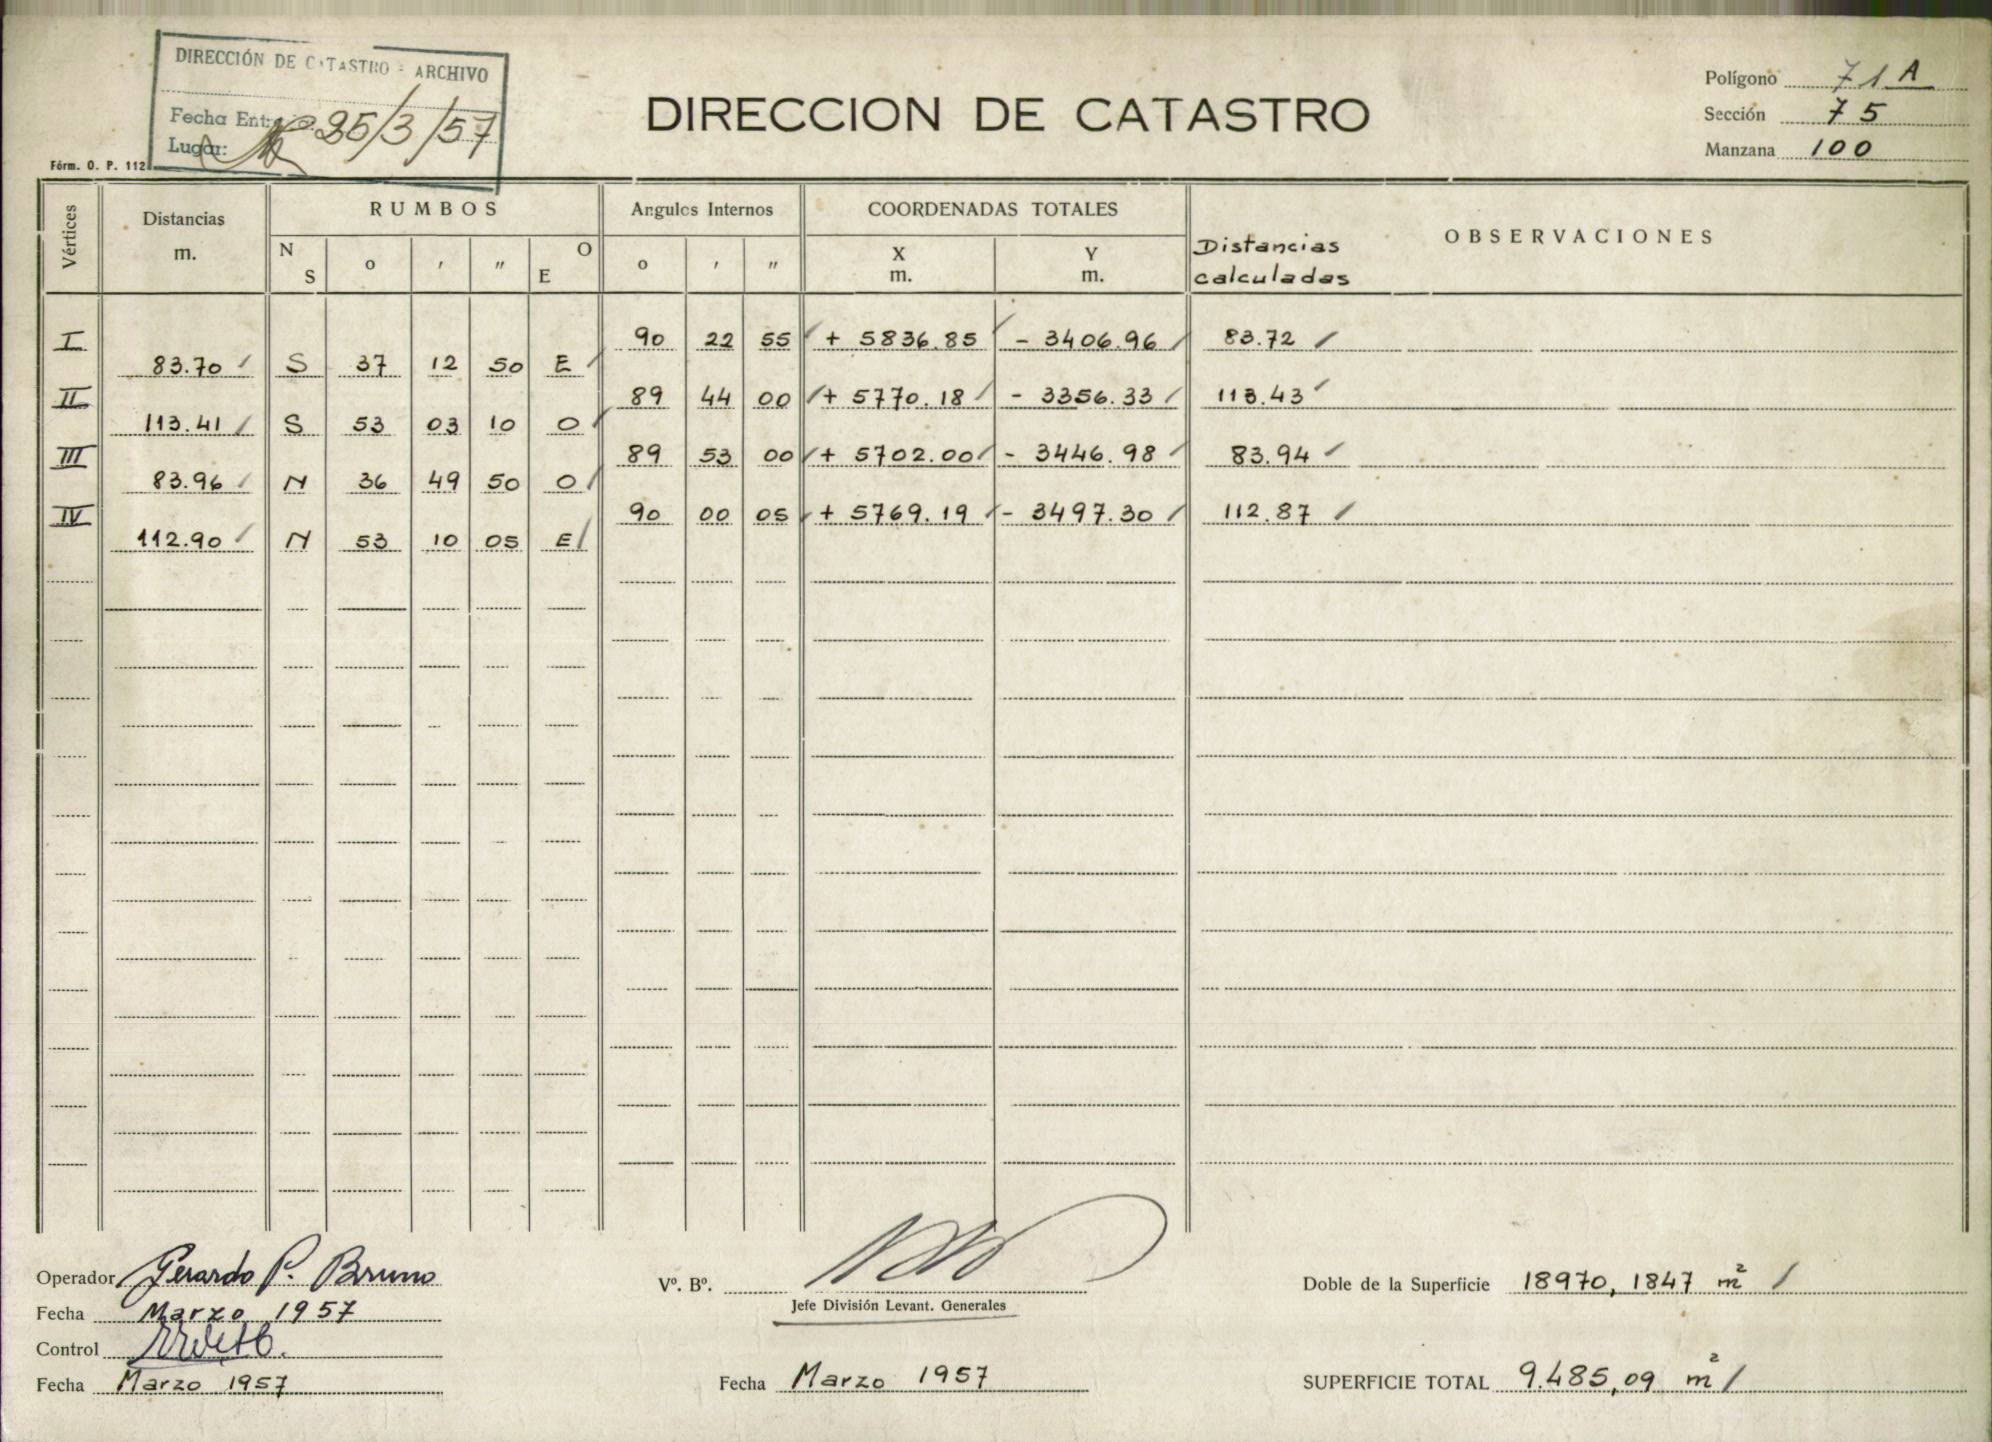 DIRECCIÓN DE CATASTRO - ARCHIVO
Fecha Ent: 25/3/57
Lugar:
Fórm. O. P. 112
DIRECCION DE CATASTRO
Polígono 71 A
Sección 75
Manzana 100
Vértices Distancias m. RUMBOS Angulos Internos COORDENADAS TOTALES Distancias calculadas OBSERVACIONES
N S o ' " O E o ' " X m. Y m.
I 90 22 55 + 5836.85 - 3406.96 83.72
83.70 S 37 12 50 E
II 89 44 00 + 5770.18 - 3356.33 113.43
113.41 S 53 03 10 O
III 89 53 00 + 5702.00 - 3446.98 83.94
83.96 N 36 49 50 O
IV 90 00 05 + 5769.19 - 3497.30 112.87
112.90 N 53 10 05 E
Operador Gerardo P. Bruno
Fecha Marzo 1957
Control
Fecha Marzo 1957
Vº. Bº.
Jefe División Levant. Generales
Fecha Marzo 1957
Doble de la Superficie 18970,1847 m²
SUPERFICIE TOTAL 9.485,09 m²